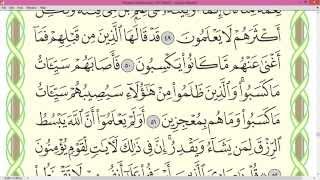 أَكْثَرَهُمْ لَا يَعْلَمُونَ ٤٩ قَدْ قَالَهَا ٱلَّذِينَ مِن قَبْلِهِمْ فَمَآ
أَغْنَىٰ عَنْهُم مَّا كَانُوا۟ يَكْسِبُونَ ٥٠ فَأَصَابَهُمْ سَيِّـَٔاتُ
مَا كَسَبُوا۟ ۚ وَٱلَّذِينَ ظَلَمُوا۟ مِنْ هَـٰٓؤُلَآءِ سَيُصِيبُهُمْ سَيِّـَٔاتُ
مَا كَسَبُوا۟ وَمَا هُم بِمُعْجِزِينَ ٥١ أَوَلَمْ يَعْلَمُوٓا۟ أَنَّ ٱللَّهَ يَبْسُطُ
ٱلرِّزْقَ لِمَن يَشَآءُ وَيَقْدِرُ ۚ إِنَّ فِى ذَٰلِكَ لَـَٔايَـٰتٍ لِّقَوْمٍ يُؤْمِنُونَ